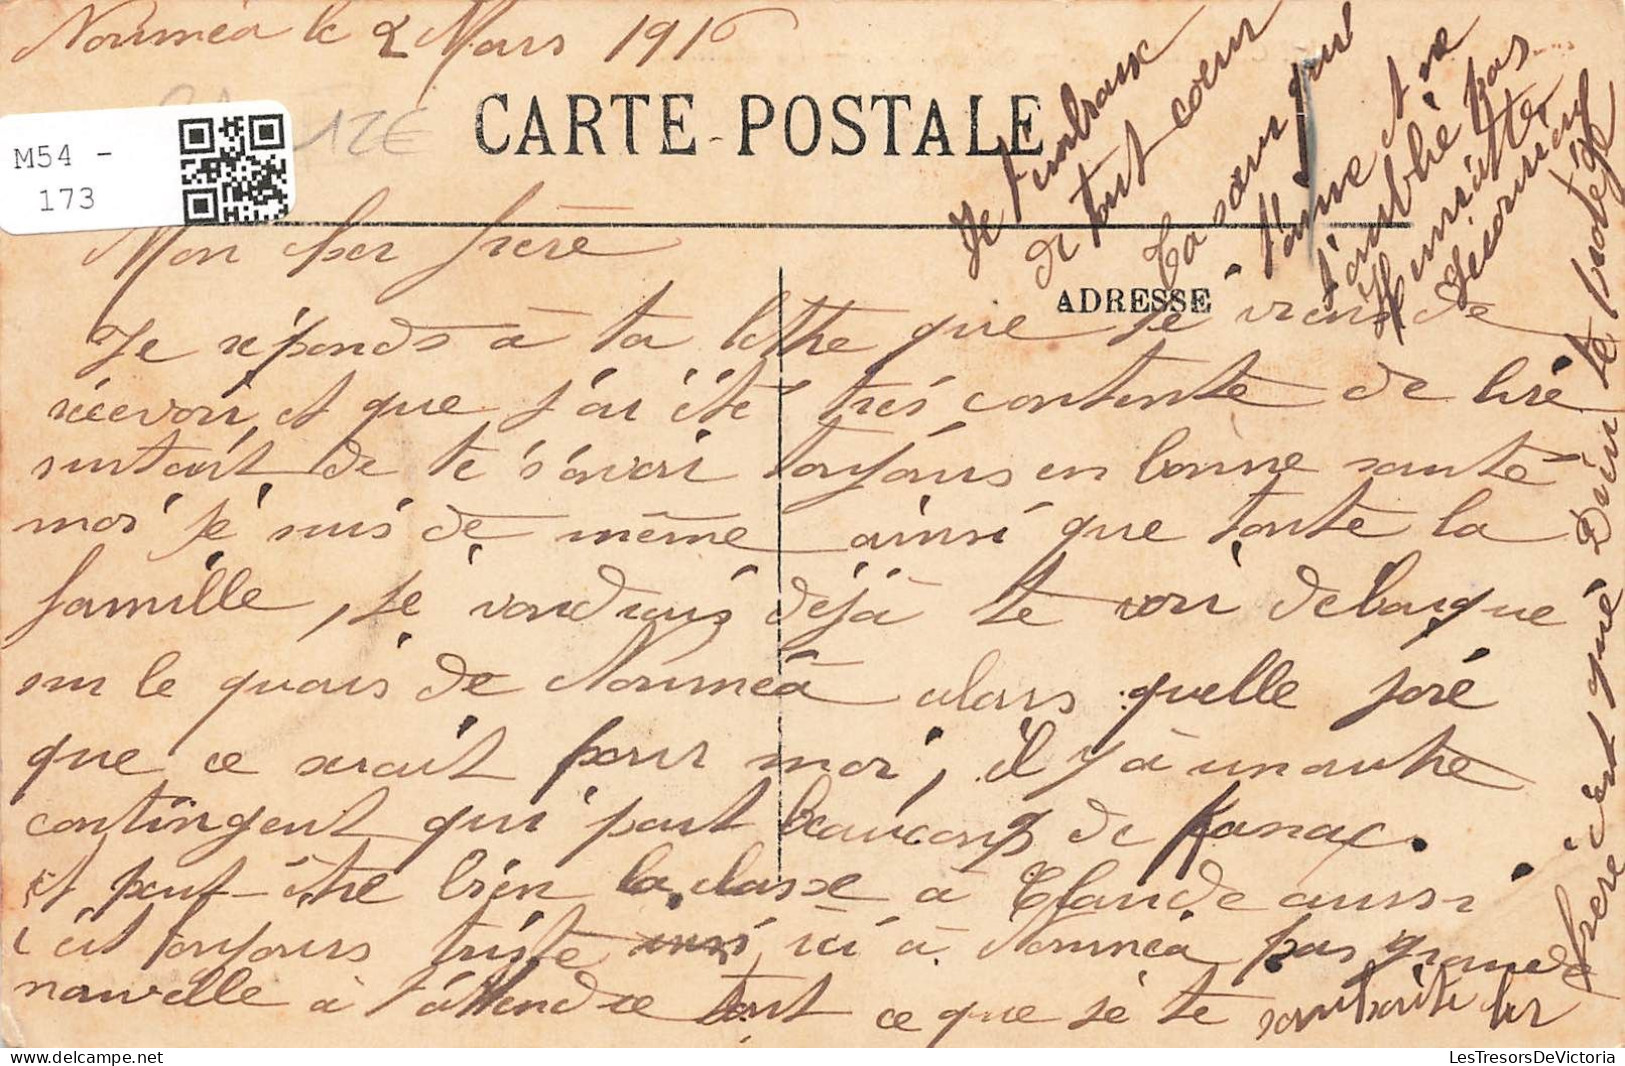 Nouméa le 2 Mars 1916
CARTE POSTALE
M54 -
173
ADRESSE
Mon cher frère
Je réponds à ta lettre que je viens de
récevoir, et que j'ai été trés contente de liré
surtout de te s'avoir toujours en bonne santé
moi je suis de même ainsi que toute la
famille, je voudrais déjà te voir débarque
sur le quais de Nouméa alors quelle joré
que ce serait pour moi, il y à un autre
contingent qui part beaucoup de Kanac.
et peut-être bien la classe à Claude aussi
c'est toujours triste ici à Nouméa pas grande
nouvelle à t'attendre tout ce que je te souhaite cher
frère c'est qué Dieu te protége
Je t'embrasse
de tout coeur
ta soeur qui
t'aime et ne
t'oublie pas
Henriette
LesTresorsDeVictoria